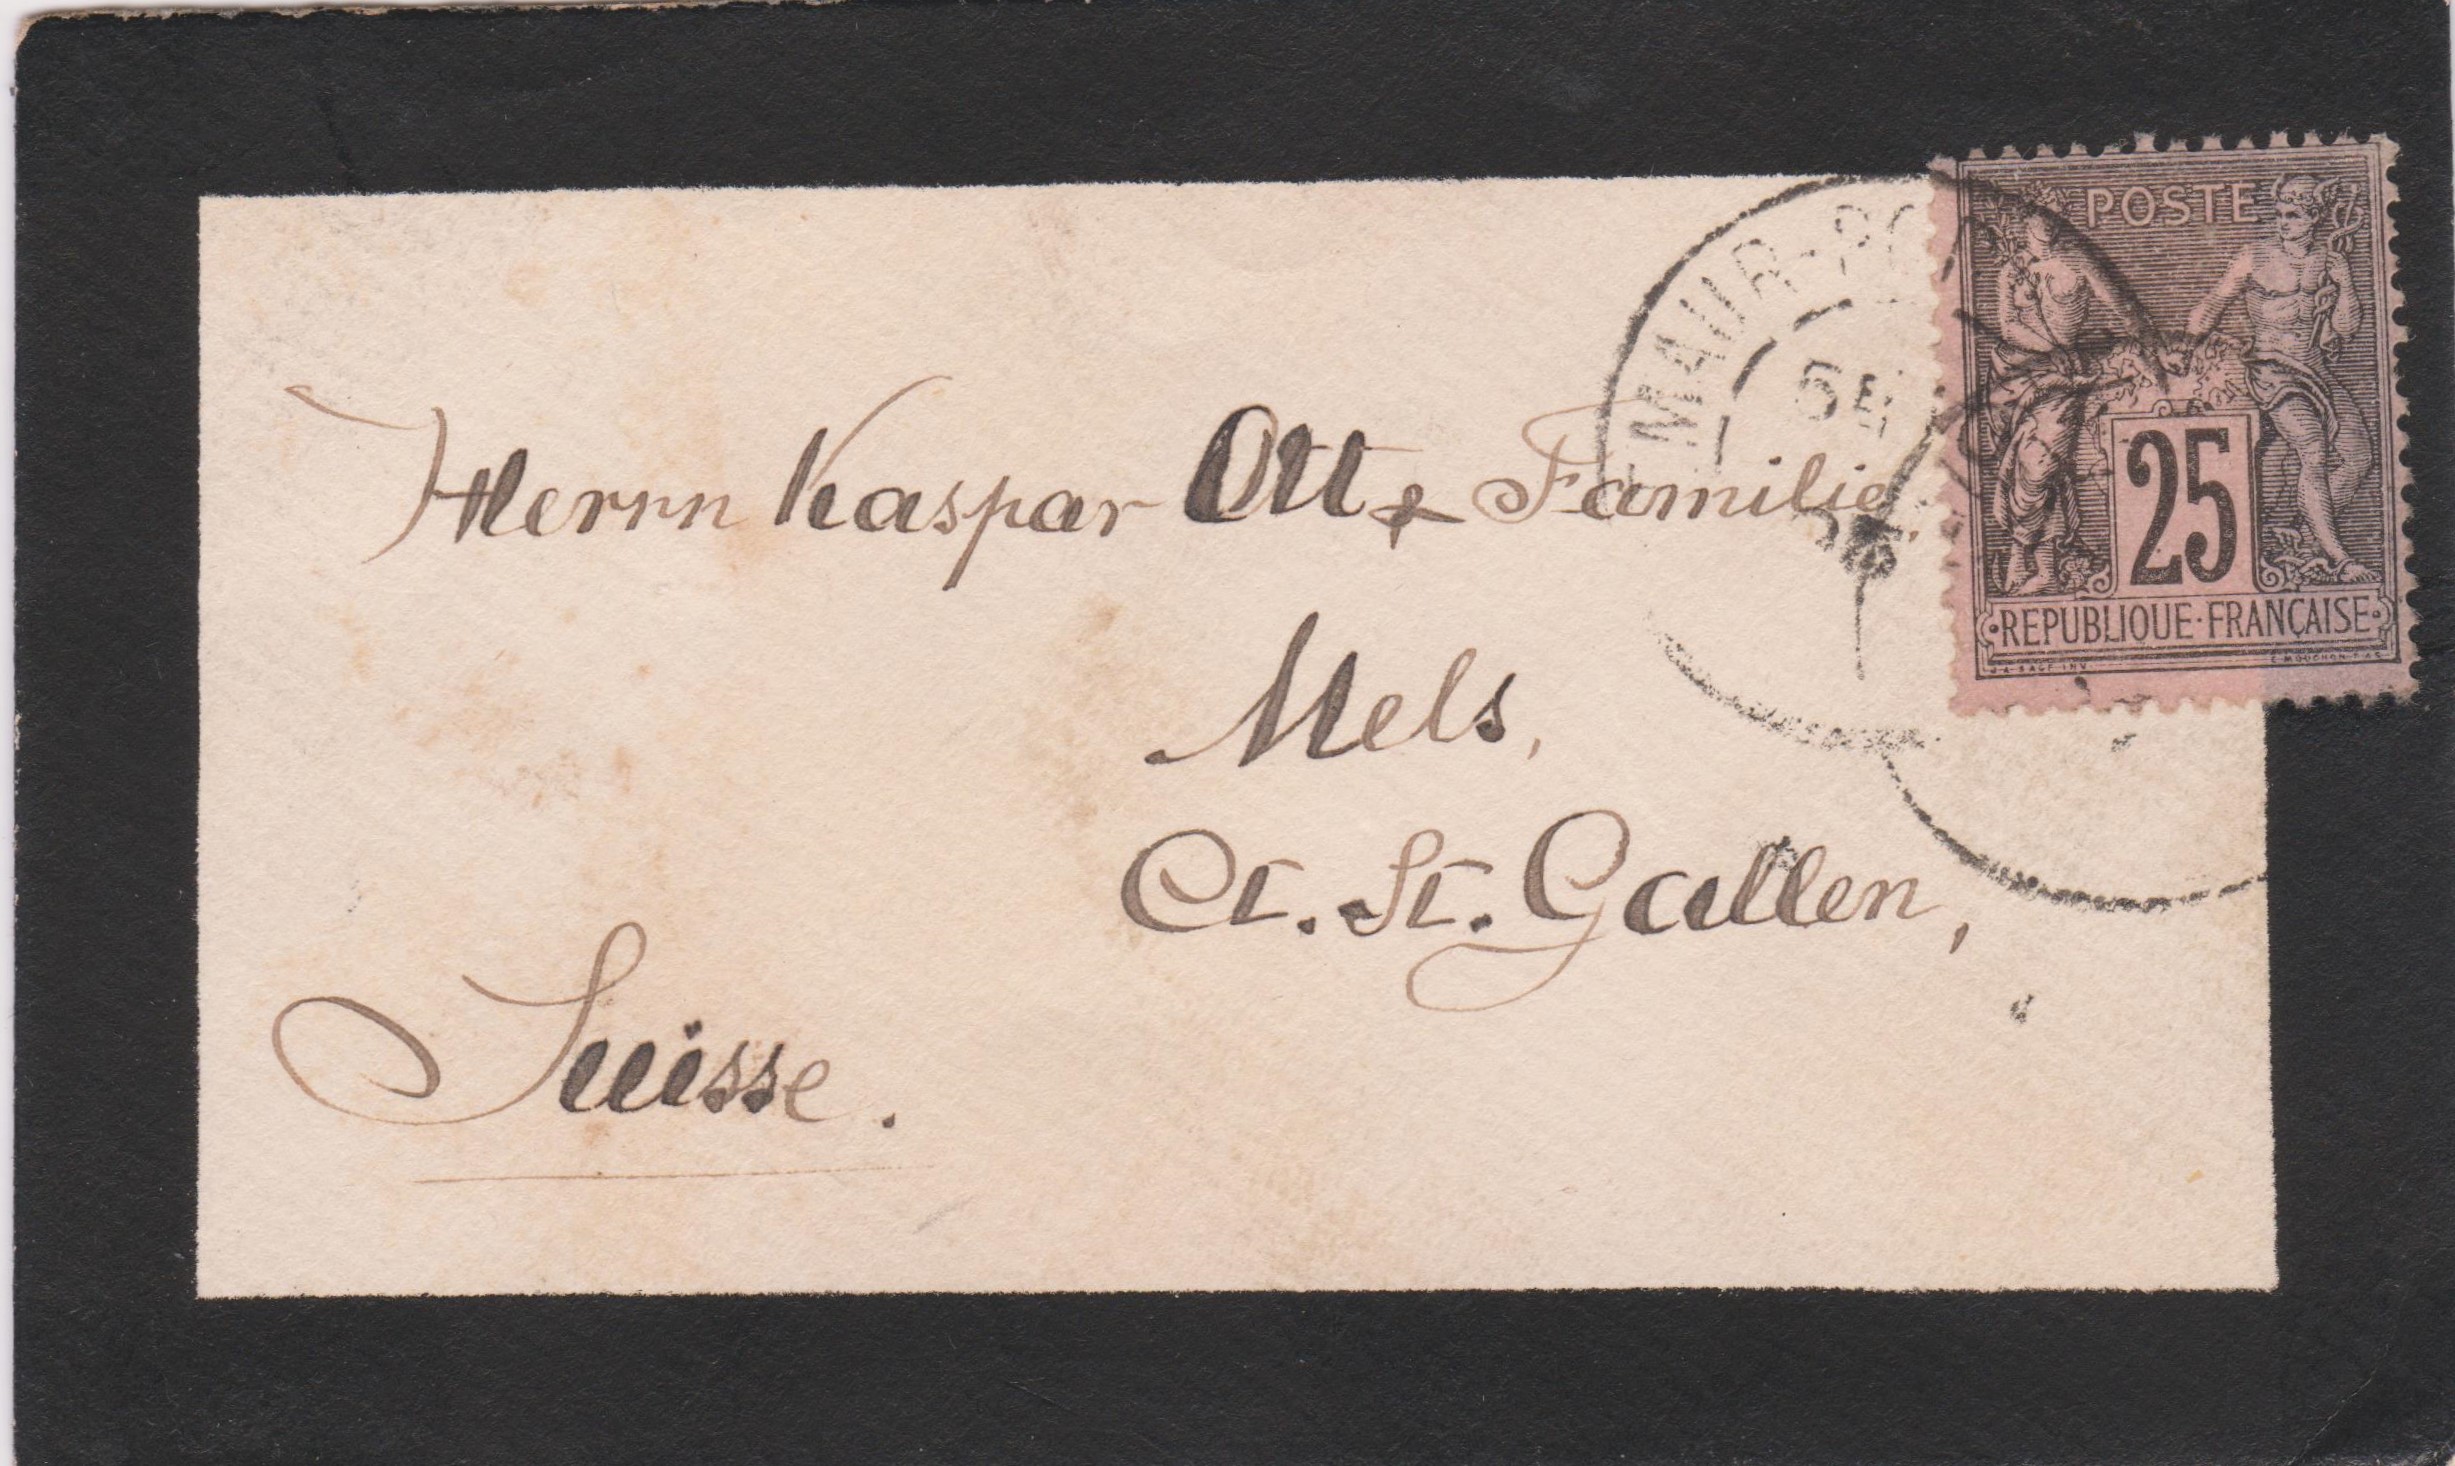 POSTE
MAUR
5E
25
REPUBLIQUE·FRANÇAISE
J.A. SAGE INV.
E. MOUCHON
Herrn Kaspar Ott & Familie,
Mels,
Ct. St. Gallen,
Suisse.